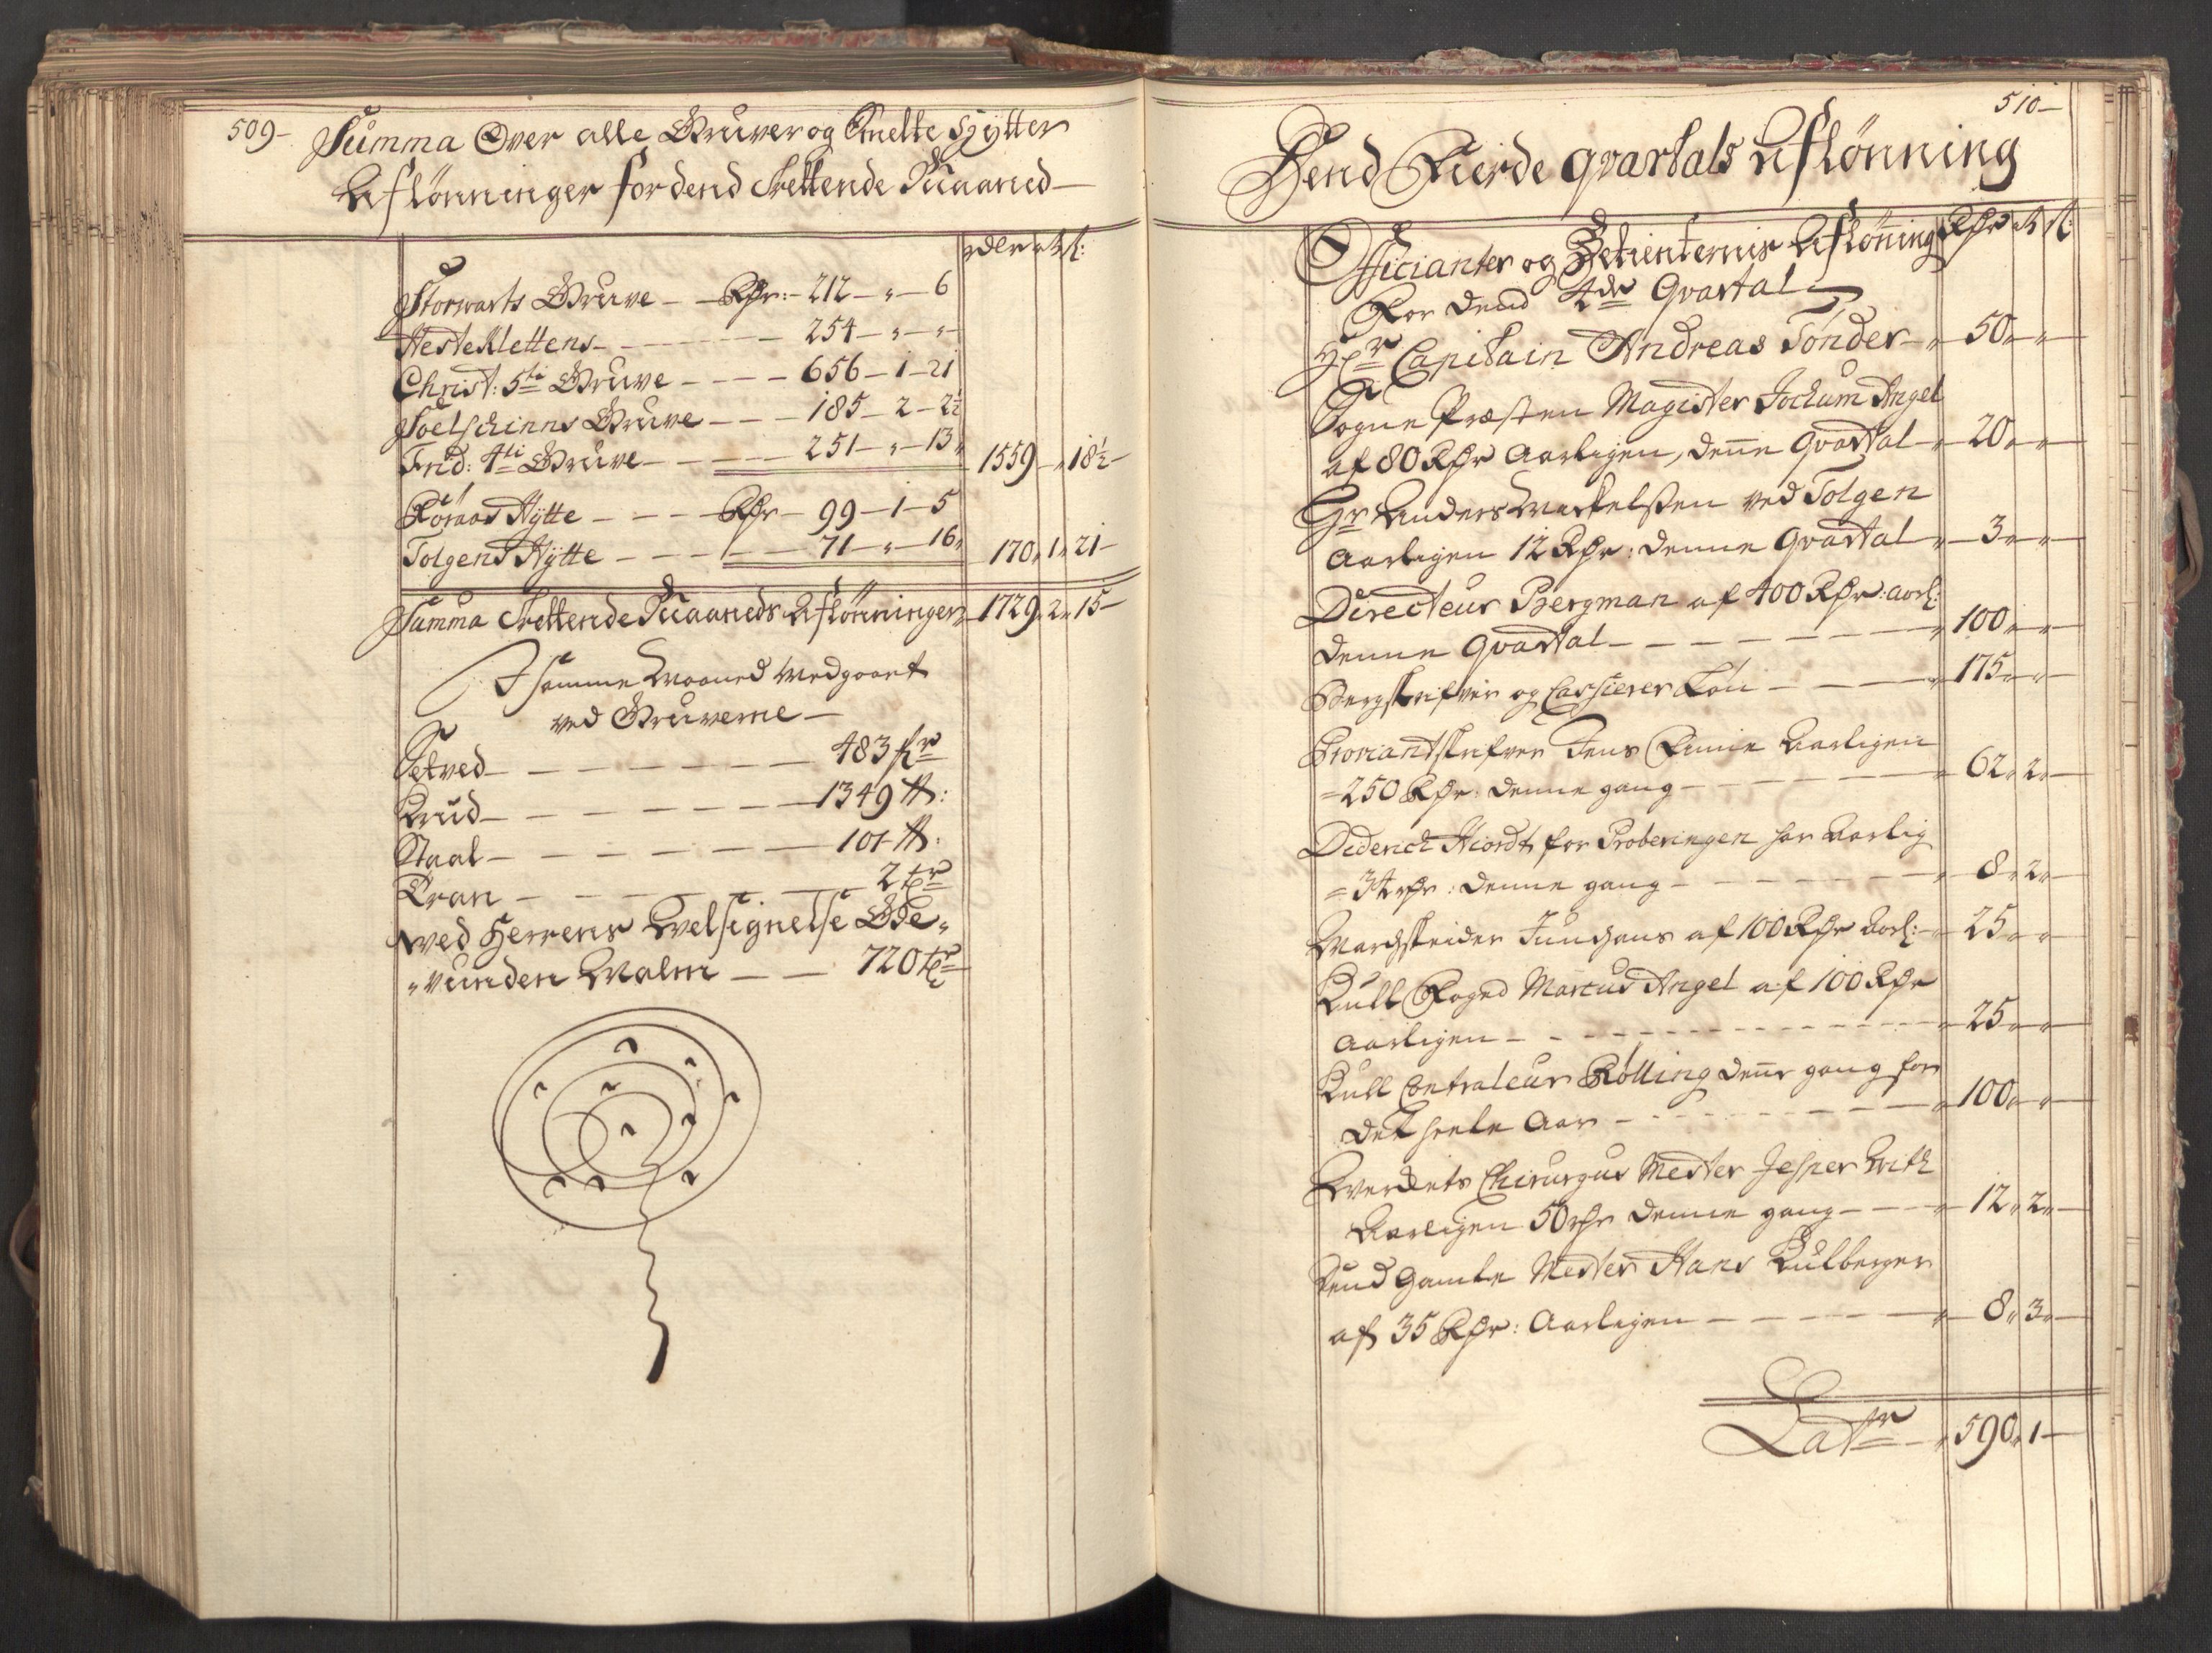 509-
Summa Over alle Gruver og Smelte Hytter
Aflønninger for dend Trettende Maaned-
rdlr
Storwarts Gruve - - Rdr:- 212 - „ - 6
Hesteklettens - - - - 254 - „ - „ -
Christ: 5ti Gruve - - - - 656 - 1 - 21
Soelschinns Gruve - - - 185 - 2 - 2½
Frid: 4ti Gruve - - - - 251 - „ - 13 „ 1559 - „ 18½ -
Røraas Hytte - - - Rdr - 99 - 1 - 5
Tolgens Hytte - - - - 71 - „ - 16 „ 170 „ 1 „ 21 -
Summa Trettende Maaneds Aflønninger „ 1729 „ 2 „ 15 -
I samme Maaned Medgaaet
ved Gruverne -
Setved - - - - - 483 fr
Krud - - - - - 1349 ℔:
Staal - - - - - 101 ℔:
Tran - - - - - 2 tr
Ved Herrens Velsignelse Be„
„vunden Malm - - 720 tr
510-
Dend Fierde Qvartals Aflønning
Officianter og Betienternis Aflønning Rdr
For dend 4de Qvartal
Hr Capitain Andreas Tønder - „ 50 „ „ -
Sogne Præsten Magister Jochum Angel
af 80 Rdr Aarligen, denne Qvartal - „ 20 „ „ -
Hr Anders ved Tolgen
Aarligen 12 Rdr: denne Qvartal - „ 3 „ „ -
Directeur Bergman af 400 Rdr: aarl:
denne Qvartal - - - - „ 100 „ „ -
Bergskrifver og Cassierer Løn - - - „ 175 „ „ -
Proviantskrifver Jens Finne Aarligen
= 250 Rdr: denne gang - - - - „ 62 „ 2 „ -
Diderich Hiordt for Proberingen har Aarlig
= 34 rdr: denne gang - - - - „ 8 „ 2 „ -
Marchskeider Junghans af 100 Rdr Aarl: - „ 25 „ „ -
Kull Foged Marcus Angel af 100 Rdr
Aarligen - - - - - - „ 25 „ „ -
Kull Contraleur Rølling denne gang for
det heele Aar - - - - - „ 100 „ „ -
Werckets Chirurgus Mester Jesper With
Aarligen 50 rdr denne gang - - - „ 12 „ 2 „ -
Dend Gamle Mester Hans Kulberger
af 35 Rdr: Aarligen - - - - „ 8 „ 3 „ -
Latr - „ 590 „ 1 -